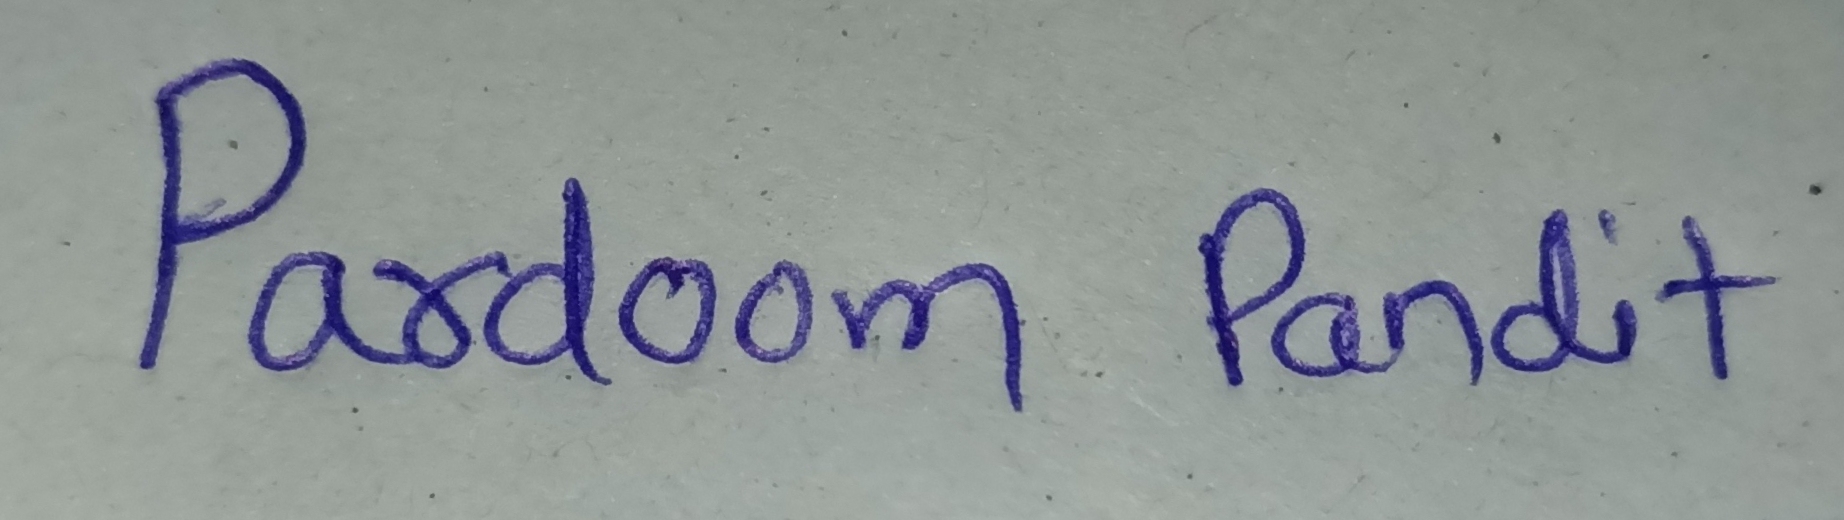 Pardoom Pandit